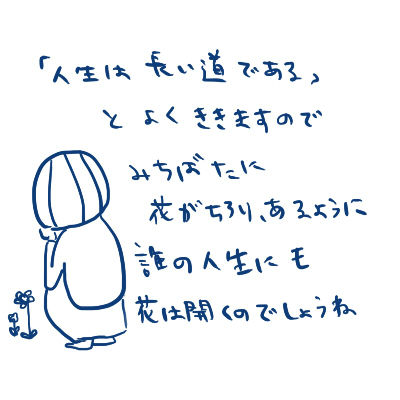 「人生は 長い道である」
と よく ききますので
みちばたに
花がちらり、あるように
誰の人生にも
花は開くのでしょうね